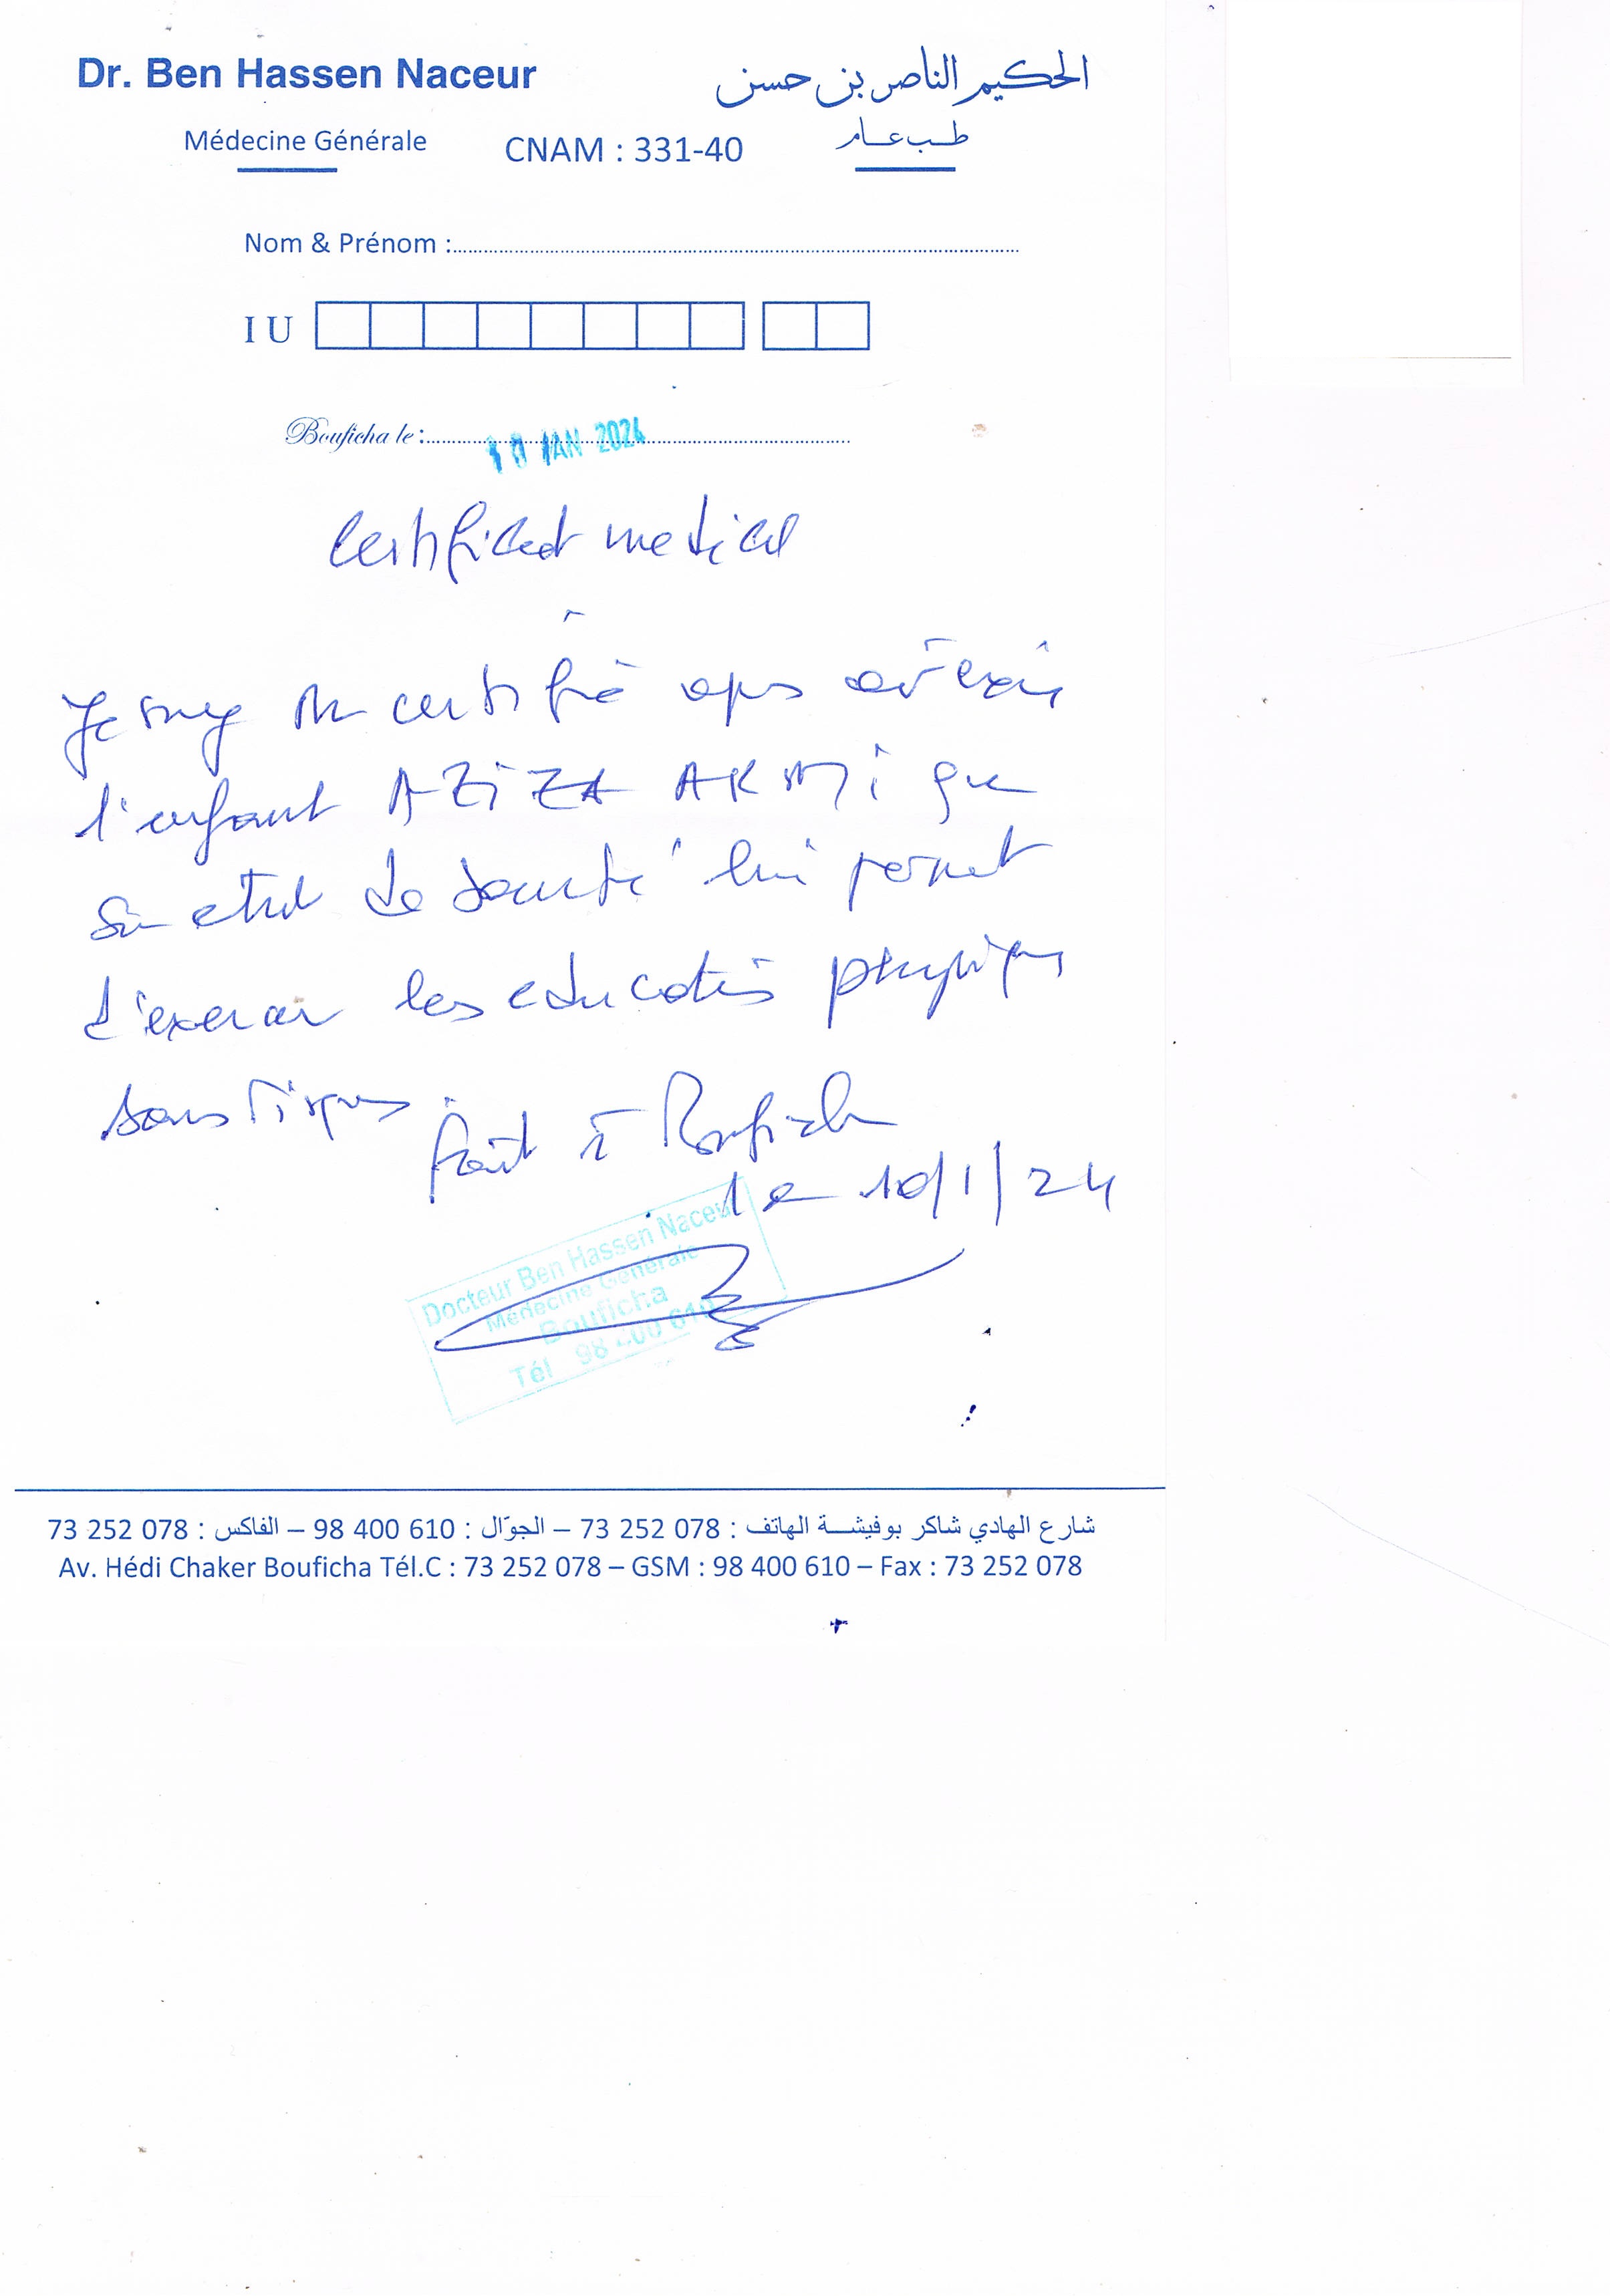 Dr. Ben Hassen Naceur
الحكيم الناصر بن حسن
Médecine Générale
طب عام
CNAM : 331-40
Nom & Prénom :
I U
Bouficha le : 10 JAN 2024
Certificat medical
Je certifie
l'enfant AZIZA AKRMI que
son etat de santé lui permet
d'exercer les education physique
sans risques
fait à Bouficha
le 10/1/24
Docteur Ben Hassen Naceur
Médecine Générale
Bouficha
Tél 98 400 610
شارع الهادي شاكر بوفيشة الهاتف : 078 252 73 – الجوّال : 610 400 98 – الفاكس : 078 252 73
Av. Hédi Chaker Bouficha Tél.C : 73 252 078 – GSM : 98 400 610 – Fax : 73 252 078